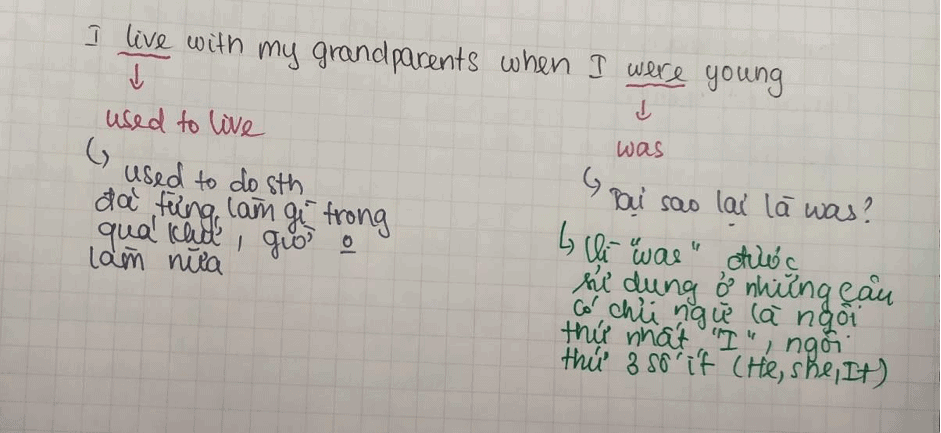 I live with my grandparents when I were young
used to live
↳ used to do sth
đã từng làm gì trong
quá khứ, giờ o
làm nữa
was
↳ Tại sao lại là was?
↳ Vì "was" được
sử dụng ở những câu
có chủ ngữ là ngôi
thứ nhất "I", ngôi
thứ 3 số ít (He, she, It)